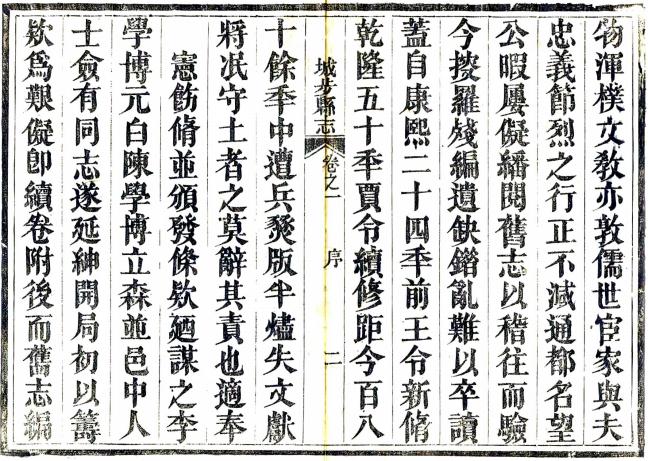 物渾樸文教亦敦儒世宦家與夫
忠義節烈之行正不減通都名望
公暇屢儗繙閱舊志以稽往而驗
今搜羅殘編遺缺錯亂難以卒讀
蓋自康熙二十四季前王令新脩
乾隆五十季賈令續修距今百八
城步縣志 卷之一 序 二
十餘季中遭兵燹版半燼失文獻
將泯守土者之莫辭其責也適奉
憲飭脩並頒發條欵廼謀之李
學博元白陳學博立森並邑中人
士僉有同志遂延紳開局初以籌
欵爲艱儗卽續卷附後而舊志編